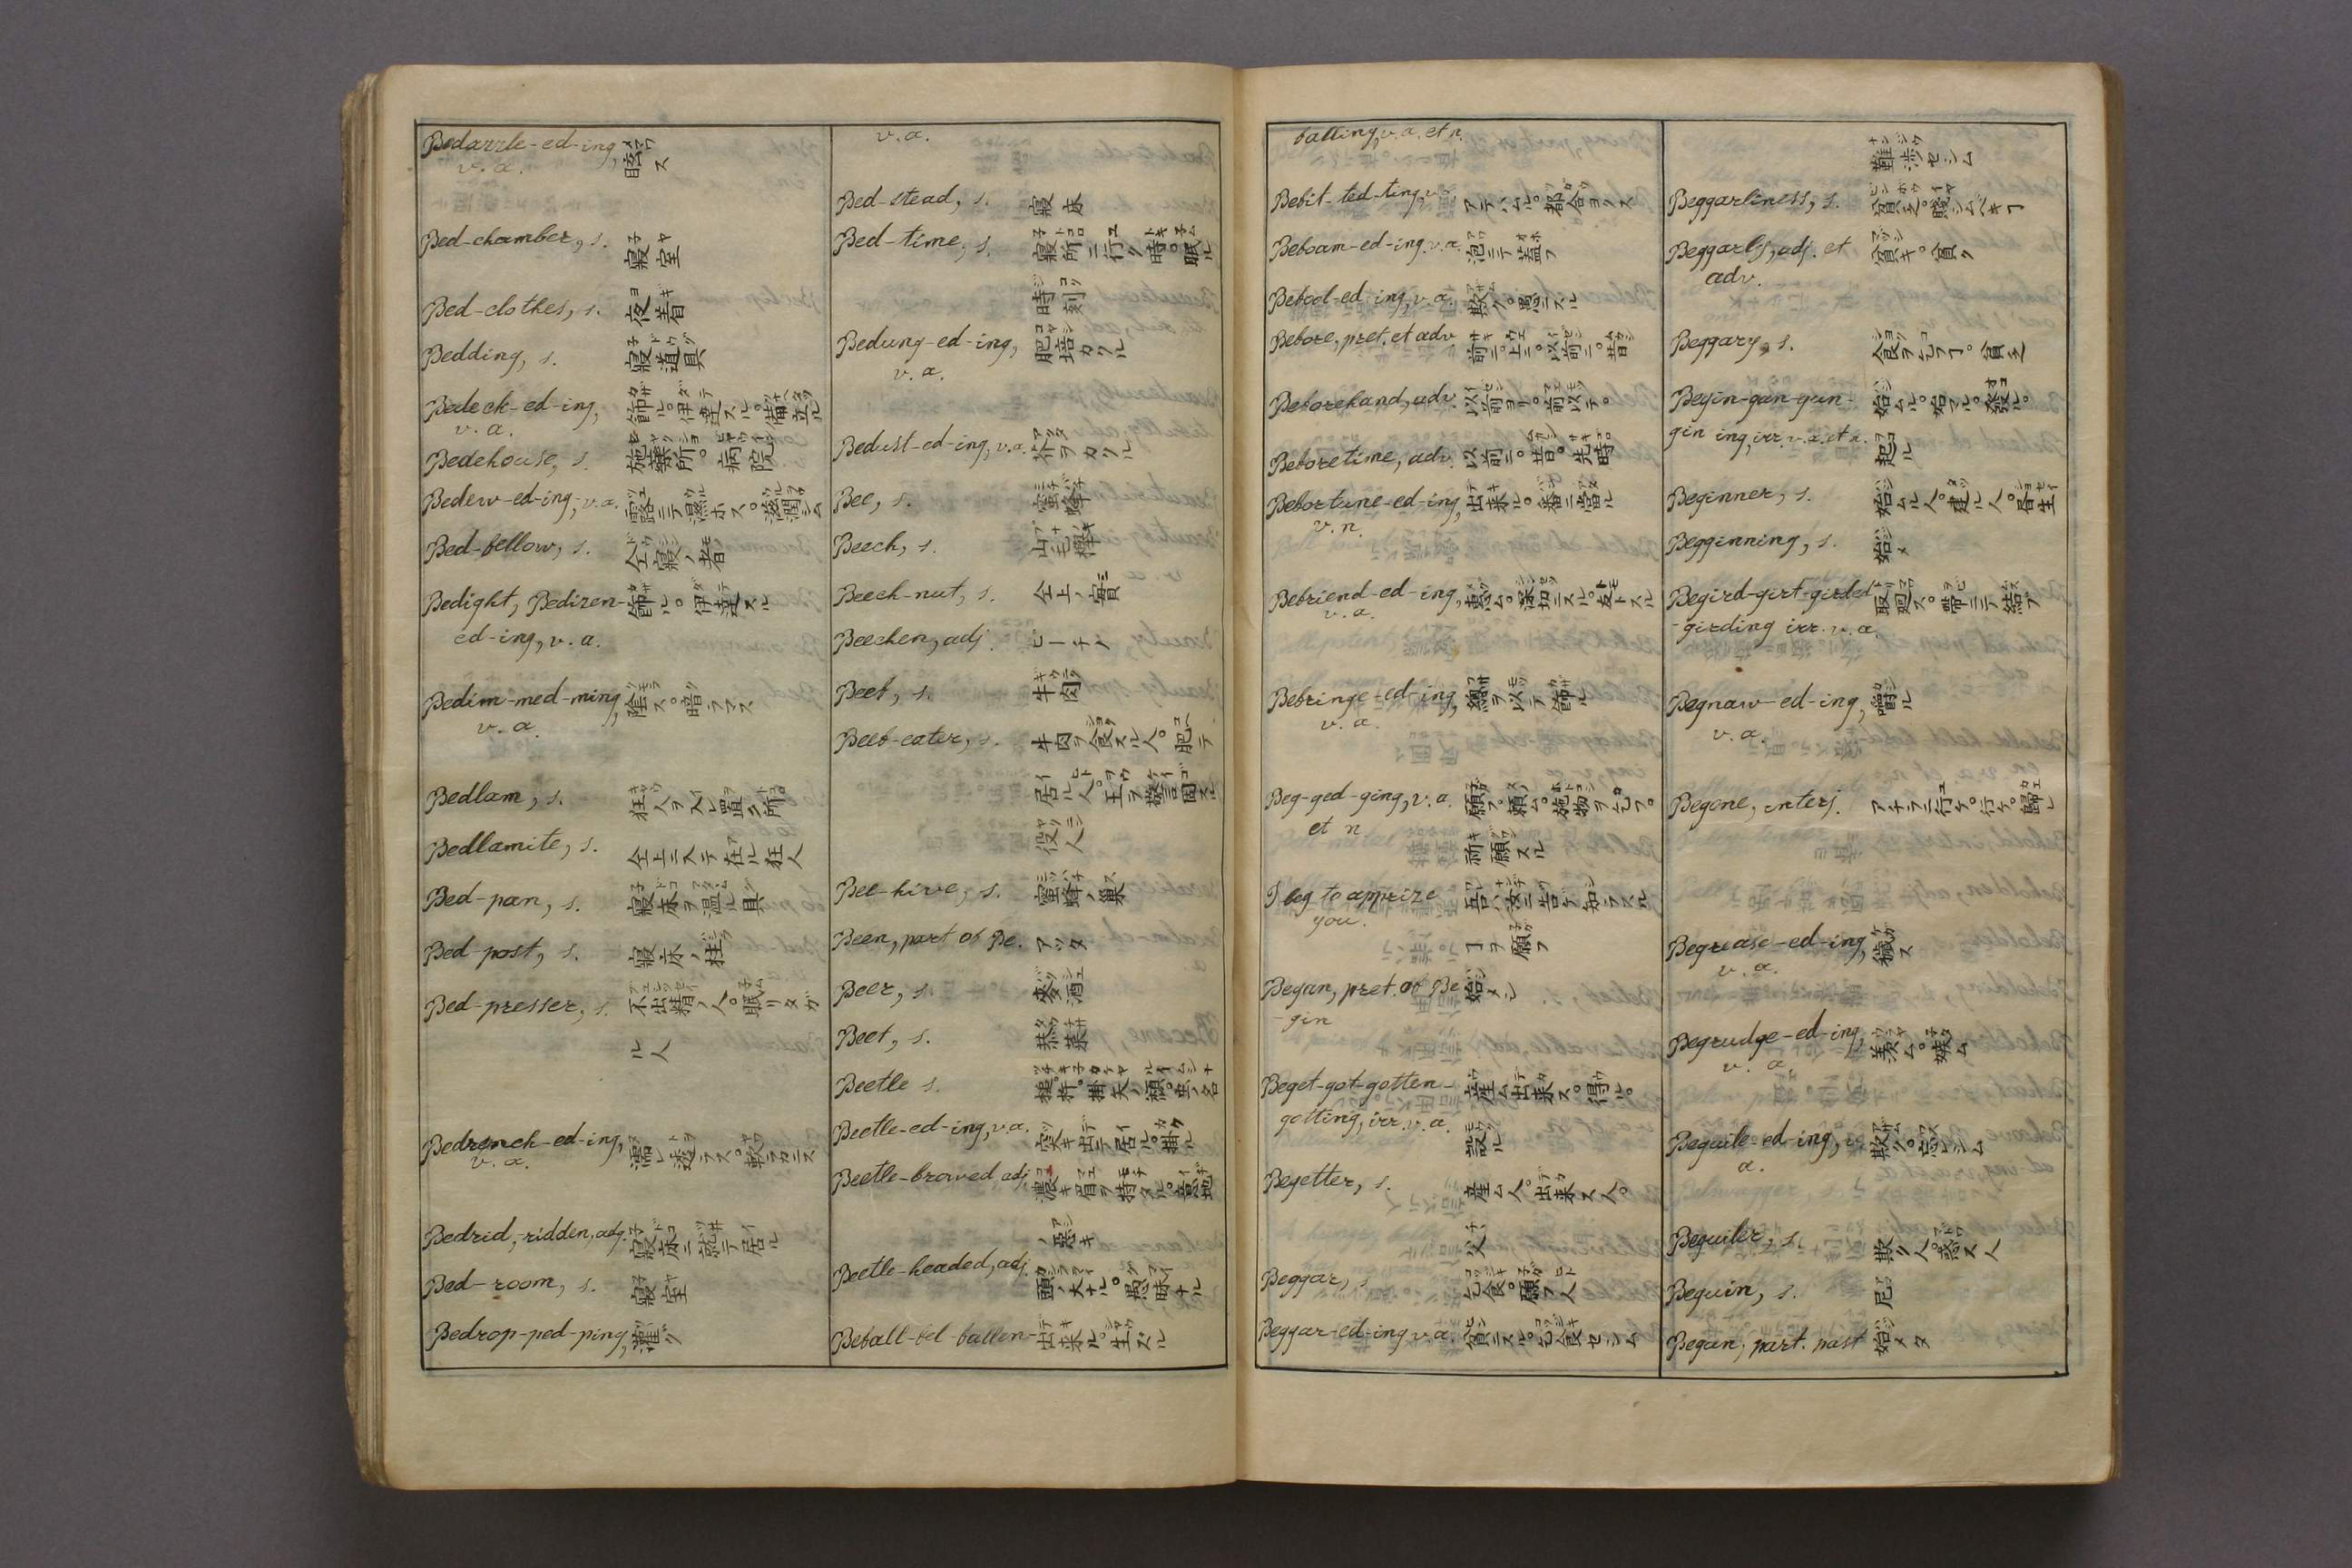 Bedazzle-ed-ing, 眩ス
v. a.
Bed-chamber, s. 寢室
Bed-clothes, s. 夜着
Bedding, s. 寢道具
Bedeck-ed-ing, 飾ル。伊達スル。備立ル
v. a.
Bedehouse, s. 施藥所。病院
Bedew-ed-ing, v.a. 露ニテ濕ホス。滋潤シム
Bed-fellow, s. 仝寢ノ者
Bedight, Bedizen- 飾ル。伊達スル
ed-ing, v. a.
Bedim-med-ming, 陰ス。暗ラマス
v. a.
Bedlam, s. 狂人ヲ入レ置ク所
Bedlamite, s. 仝上ニステ在ル狂人
Bed-pan, s. 寢床ヲ温ル具
Bed-post, s. 寢床ノ柱
Bed-presser, s. 不出精ノ人。眠リタガ
ル人
Bedrench-ed-ing, 濡レ透ラス。軟ラカニス
v. a.
Bedrid,-ridden, adj. 寢床ニ就テ居ル
Bed-room, s. 寢室
Bedrop-ped-ping, 灌ク
v. a.
Bed-stead, s. 寢床
Bed-time, s. 寢所ニ行ク時。眠ル
時刻
Bedung-ed-ing, 肥培カクル
v. a.
Bedust-ed-ing, v.a. 芥ヲカクル
Bee, s. 蜜蜂
Beech, s. 山毛欅
Beech-nut, s. 仝上ノ實
Beechen, adj. ビーチノ
Beef, s. 牛肉
Beef-eater, s. 牛肉ヲ食スル人。肥テ
居ル人。王ヲ警固スル
役人
Bee-hive, s. 蜜蜂ノ巢
Been, part of Be. アツタ
Beer, s. 麥酒
Beet, s. 菾菜
Beetle s. 槌。杵。掛矢ノ類。虫ノ名
Beetle-ed-ing, v.a. 突キ出テ居ル。掛ル
Beetle-browed, adj. 濃キ眉ヲ持タル。意地
ノ惡キ
Beetle-headed, adj. 頭ノ大ナル。愚昧ナル
Befall-fel-fallen- 出来ル。生スル
falling, v. a. et n.
Befit-ted-ting, v. アテハムル。都合ヨクス
Befoam-ed-ing, v. a. 泡ニテ蓋フ
Befool-ed ing, v. a. 欺ク。愚ニスル
Before, pret. et adv. 前ニ。上ニ。以前ニ。昔
Beforehand, adv. 以前ヨリ。前以テ。
Beforetime, adv. 以前ニ。昔。先時
Befortune-ed-ing, 出来ル。番ニ當ル
v. n.
Befriend-ed-ing, 惠ム。深切ニスル。友トスル
v. a.
Befringe-ed-ing, 總ヲ以テ飾ル
v. a.
Beg-ged-ging, v. a. 願フ。頼ム。施物ヲ乞フ。
et n 祈願スル
I beg to apprize 吾ハ汝ニ告ケ知ラスル
you. ヿヲ願フ
Began, pret. of Be 始メシ
-gin
Beget-got-gotten- 産ム出来ス。得ル。
getting, irr. v. a. 設ル
Begetter, s. 産ム人。出来ス人。
父
Beggar, s 乞食。願フ人
Beggar-ed-ing v. a. 貧ニスル。乞食セシム
難澁セシム
Beggarliness, s. 貧乏。賤シムヘキヿ
Beggarly, adj. et 貧キ。貧ク
adv.
Beggary, s. 食ヲ乞フヿ。貧乏
Begin-gan-gun- 始ムル。始マル。發ル。
gin ing, irr. v. a. et n. 起ル
Beginner, s. 始ムル人。建ル人。書生
Begginning, s. 始メ
Begird-girt-girded 取廻ス。帶ニテ結フ
-girding irr. v. a.
Begnaw-ed-ing, 嚙ル
v. a.
Begone, interj. アチラニ行ケ。行ケ。歸レ
Begrease-ed-ing, 穢ス
v. a.
Begrudge-ed-ing, 羨ム。嫉ム
v. a.
Beguile-ed-ing, v. 欺ク。忘レシム
a.
Beguiler, s. 欺ク人。惑ス人
Beguin, s. 尼
Begun, part. past 始メタ